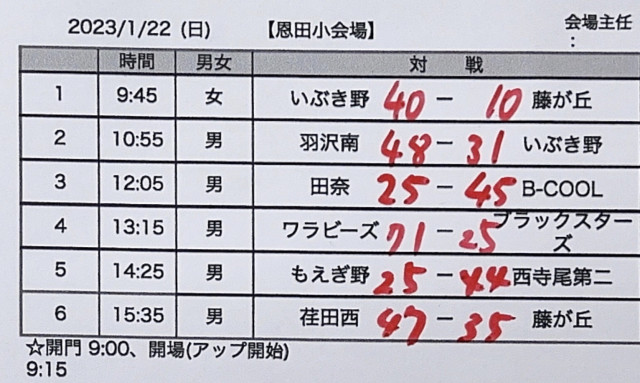 2023/1/22 (日) 【恩田小会場】 会場主任
:
時間 男女 対 戦
1 9:45 女 いぶき野 40 － 10 藤が丘
2 10:55 男 羽沢南 48 － 31 いぶき野
3 12:05 男 田奈 25 － 45 B-COOL
4 13:15 男 ワラビーズ 71 － 25 ブラックスター
ズ
5 14:25 男 もえぎ野 25 － 44 西寺尾第二
6 15:35 男 荏田西 47 － 35 藤が丘
☆開門 9:00、開場(アップ開始)
9:15